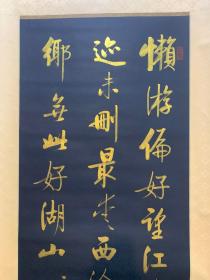 懒游偏好望江
迹未删最爱西
乡无此好湖山